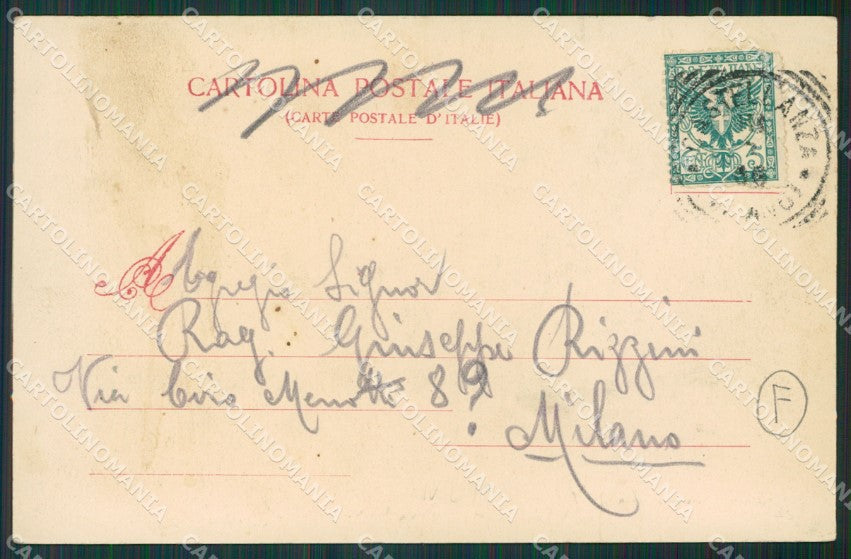 CARTOLINA POSTALE ITALIANA
(CARTE POSTALE D'ITALIE)
A
Egregio Signor
Rag. Giuseppe Rizzini
Via Ciro Menotti 8
Milano
F
CARTOLINOMANIA